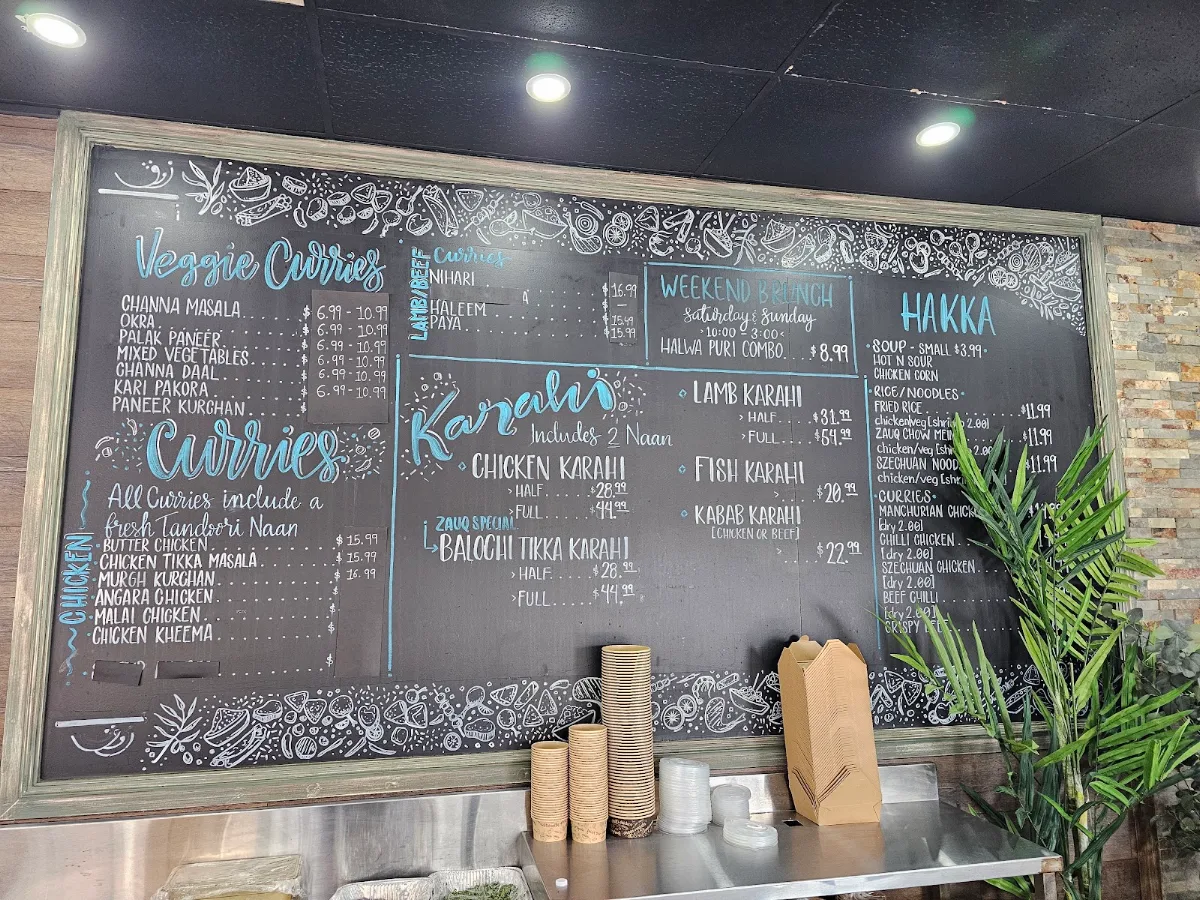 Veggie Curries
CHANNA MASALA $ 6.99 - 10.99
OKRA $ 6.99 - 10.99
PALAK PANEER $ 6.99 - 10.99
MIXED VEGETABLES $ 6.99 - 10.99
CHANNA DAAL $ 6.99 - 10.99
KARI PAKORA $
PANEER KURCHAN $
Curries
All Curries include a
fresh Tandoori Naan
CHICKEN
BUTTER CHICKEN $ 15.99
CHICKEN TIKKA MASALA $ 15.99
MURGH KURCHAN $ 16.99
ANGARA CHICKEN $
MALAI CHICKEN $
CHICKEN KHEEMA $
$
LAMB/BEEF Curries
NIHARI $ 16.99
HALEEM $ 15.99
PAYA $ 15.99
WEEKEND BRUNCH
Saturday & Sunday
10:00 - 3:00
HALWA PURI COMBO... $8.99
Karahi
Includes 2 Naan
CHICKEN KARAHI
> HALF $28.99
> FULL $44.99
ZAUQ SPECIAL
BALOCHI TIKKA KARAHI
> HALF $28.99
> FULL $44.99
LAMB KARAHI
> HALF $31.99
> FULL $54.99
FISH KARAHI
> $20.99
KABAB KARAHI
[CHICKEN OR BEEF]
> $22.99
HAKKA
SOUP - SMALL $3.99
HOT N SOUR
CHICKEN CORN
RICE/NOODLES
FRIED RICE $11.99
chicken/veg [shrimp 2.00]
ZAUQ CHOW MEIN $11.99
chicken/veg [shr 2.00]
SZECHUAN NOOD $11.99
chicken/veg [shr
CURRIES
MANCHURIAN CHICK
[dry 2.00]
CHILLI CHICKEN
[dry 2.00]
SZECHUAN CHICKEN
[dry 2.00]
BEEF CHILLI
[dry 2.00]
CRISPY BEEF